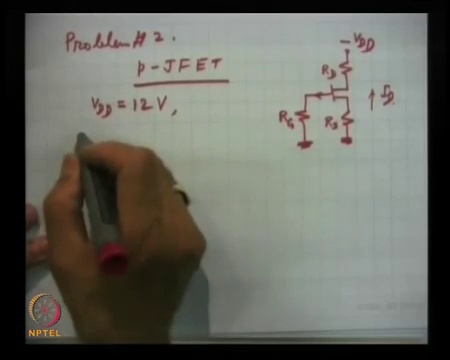 Problem # 2.
p-JFET
V_DD = 12 V,
-V_DD
R_D
I_D
R_G
R_S
NPTEL